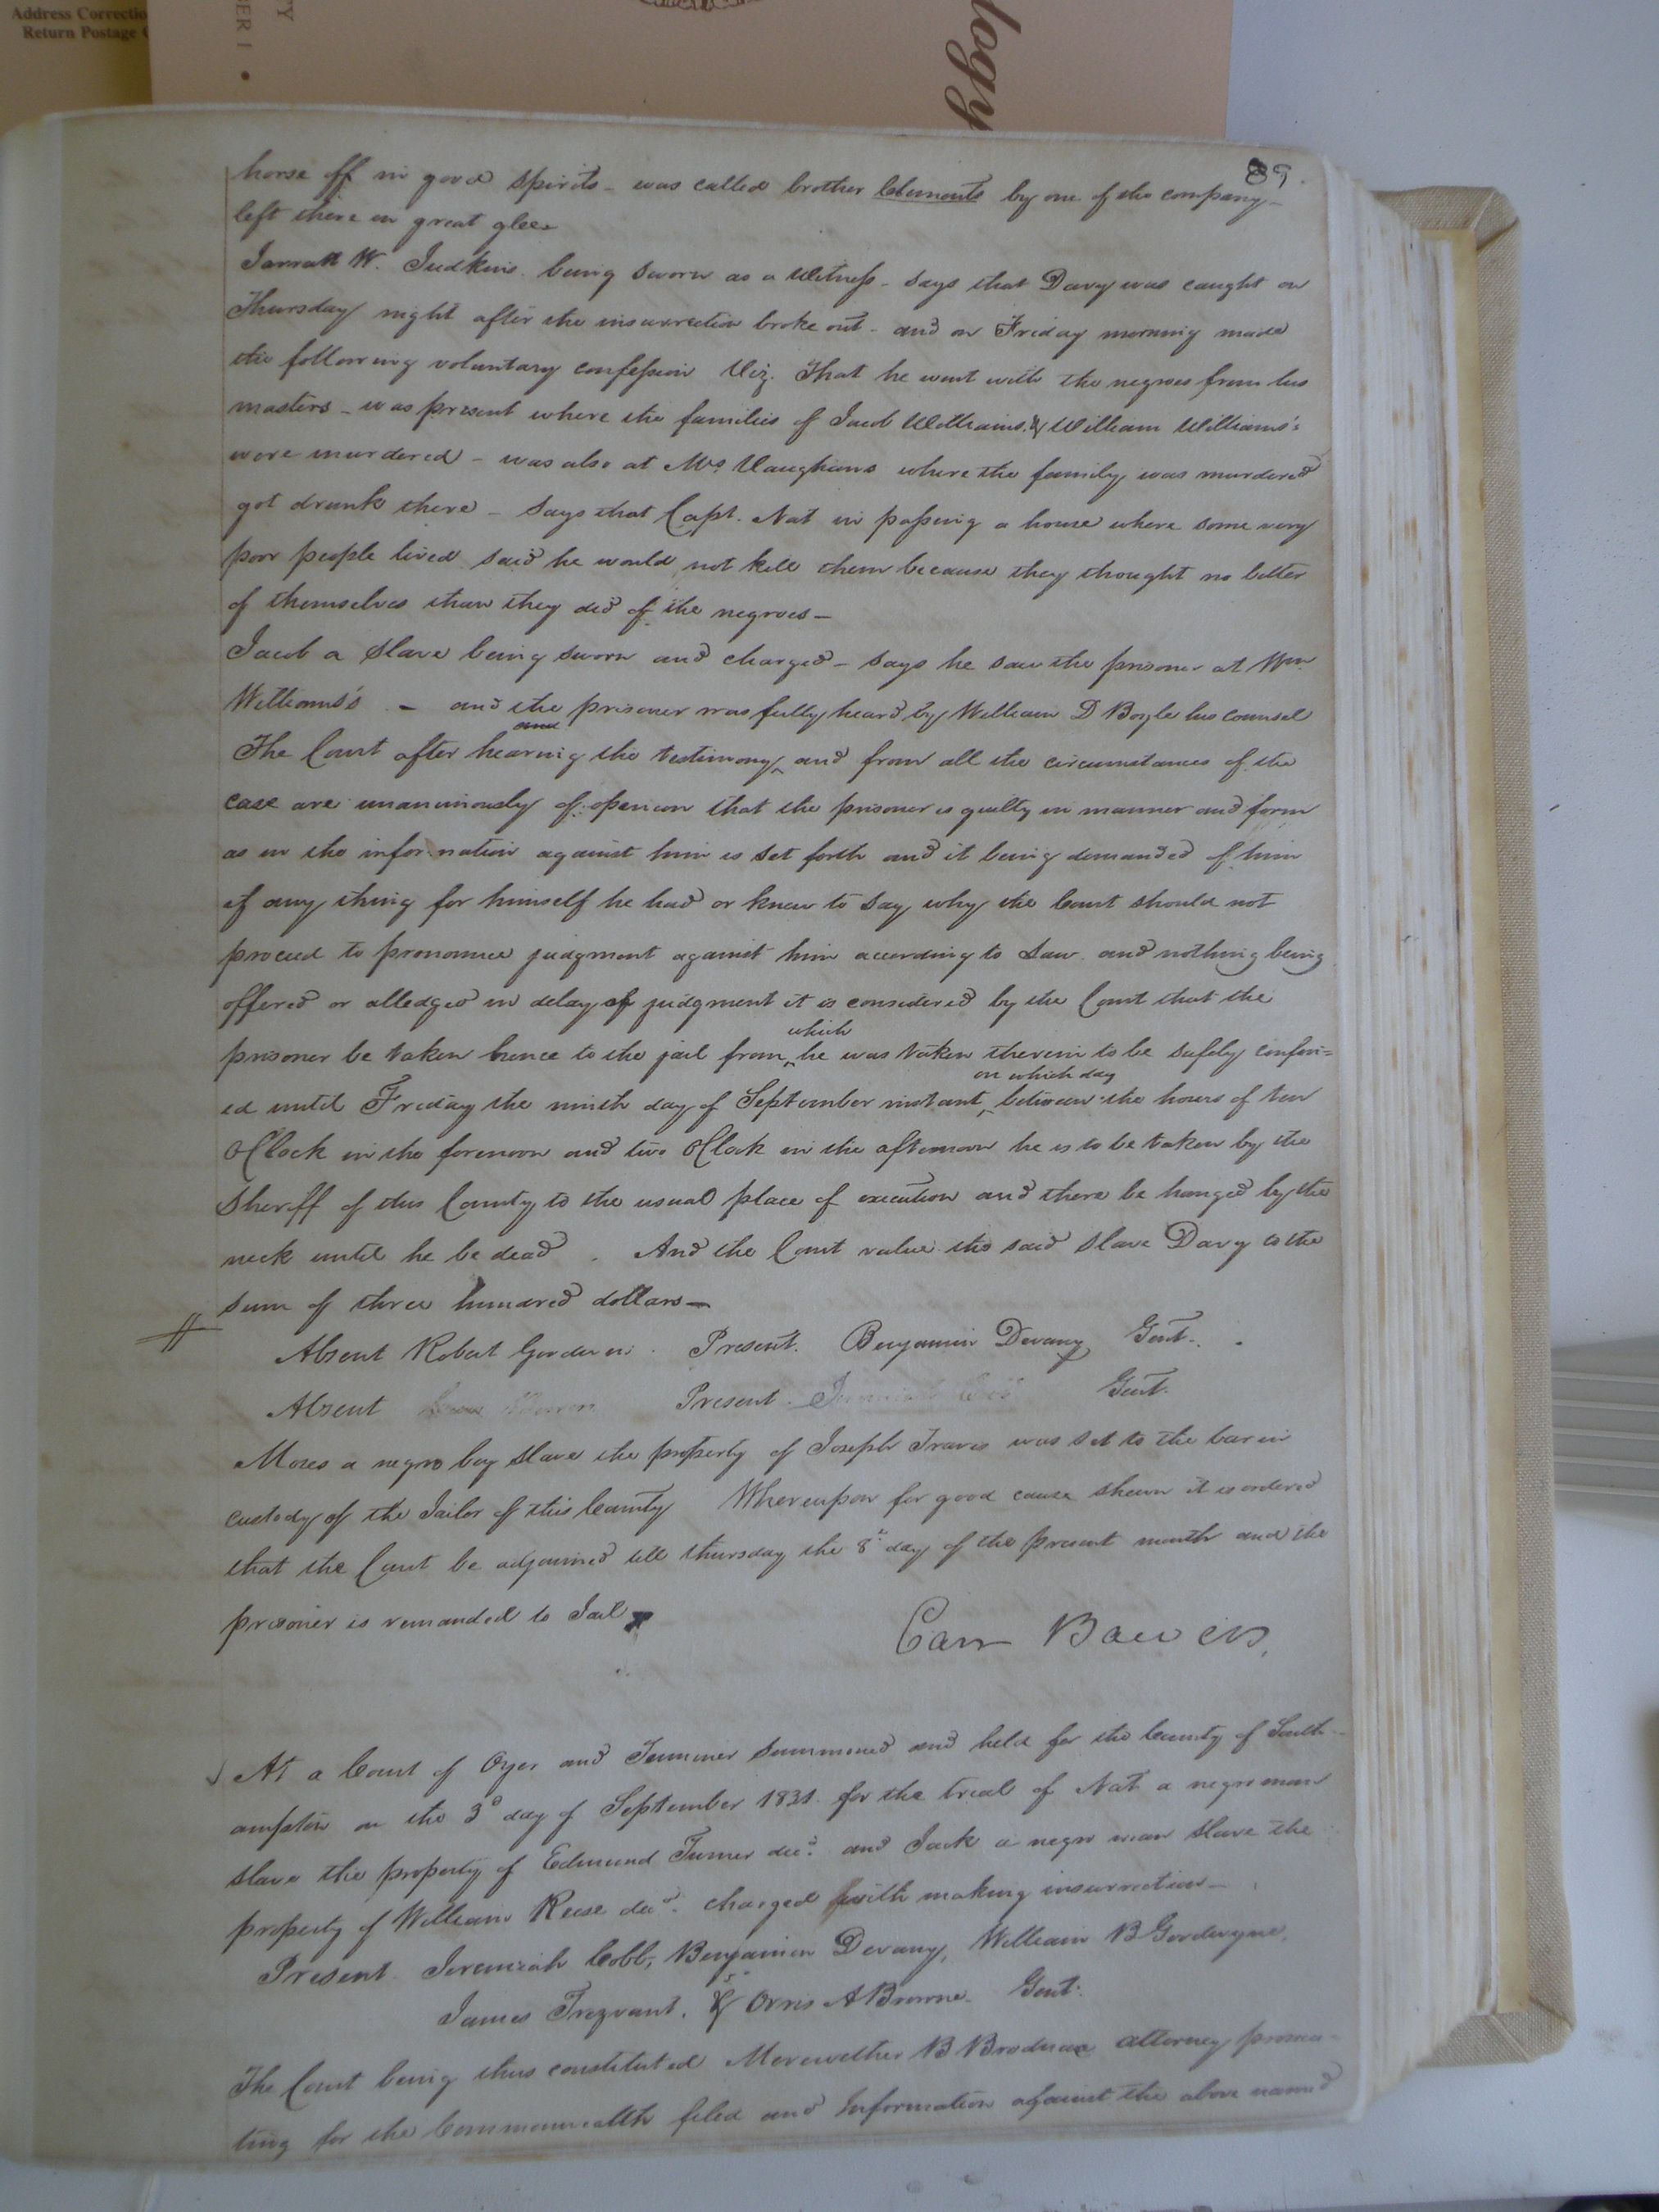 Address Correctio
Return Postage
TY
BER 1 •
logy
89
horse off in good spirits - was called brother Clements by one of the company -
left there in great glee
Jarratt W. Judkins being sworn as a Witness - says that Davy was caught on
Thursday night after the insurrection broke out - and on Friday morning made
the following voluntary confession Viz. That he went with the negroes from his
masters - was present where the families of Jacob Williams & William Williams's
were murdered - was also at Mrs Vaughans where the family was murdered
got drunk there - says that Capt. Nat in passing a house where some very
poor people lived said he would not kill them because they thought no better
of themselves than they did of the negroes -
Jacob a slave being sworn and charged - says he saw the prisoner at Wm
Williams's - and the prisoner was fully heard by William D Boyle his counsel
The Court after hearing the testimony and from all the circumstances of the
case are unanimously of opinion that the prisoner is guilty in manner and form
as in the information against him is set forth and it being demanded of him
if any thing for himself he had or knew to say why the Court should not
proceed to pronounce judgment against him according to Law and nothing being
offered or alledged in delay of judgment it is considered by the Court that the
which
prisoner be taken hence to the jail from ^ he was taken therein to be safely confin=
on which day
ed until Friday the ninth day of September instant ^ between the hours of ten
OClock in the forenoon and two OClock in the afternoon he is to be taken by the
Sheriff of this County to the usual place of execution and there be hanged by the
neck until he be dead . And the Court value the said slave Davy to the
sum of three hundred dollars -
Absent Robert Goodwin . Present . Benjamin Devany Gent .
Absent Present . Gent .
Moses a negro boy slave the property of Joseph Travis was set to the bar in
custody of the Jailor of this County Whereupon for good cause shewn it is ordered
that the Court be adjourned till thursday the 8th day of the present month and the
prisoner is remanded to Jail
Carr Bowers,
At a Court of Oyer and Terminer summoned and held for the County of South-
ampton on the 3d day of September 1831 for the trial of Nat a negro man
slave the property of Edmund Turner decd and Jack a negro man slave the
property of William Reese decd charged with making insurrection -
Present Jeremiah Cobb, Benjamin Devany, William B Goodwyne,
James Trezvant, & Orris A Browne Gent.
The Court being thus constituted Merewether B Brodnax attorney prosecu-
ting for the Commonwealth filed and Information against the above named